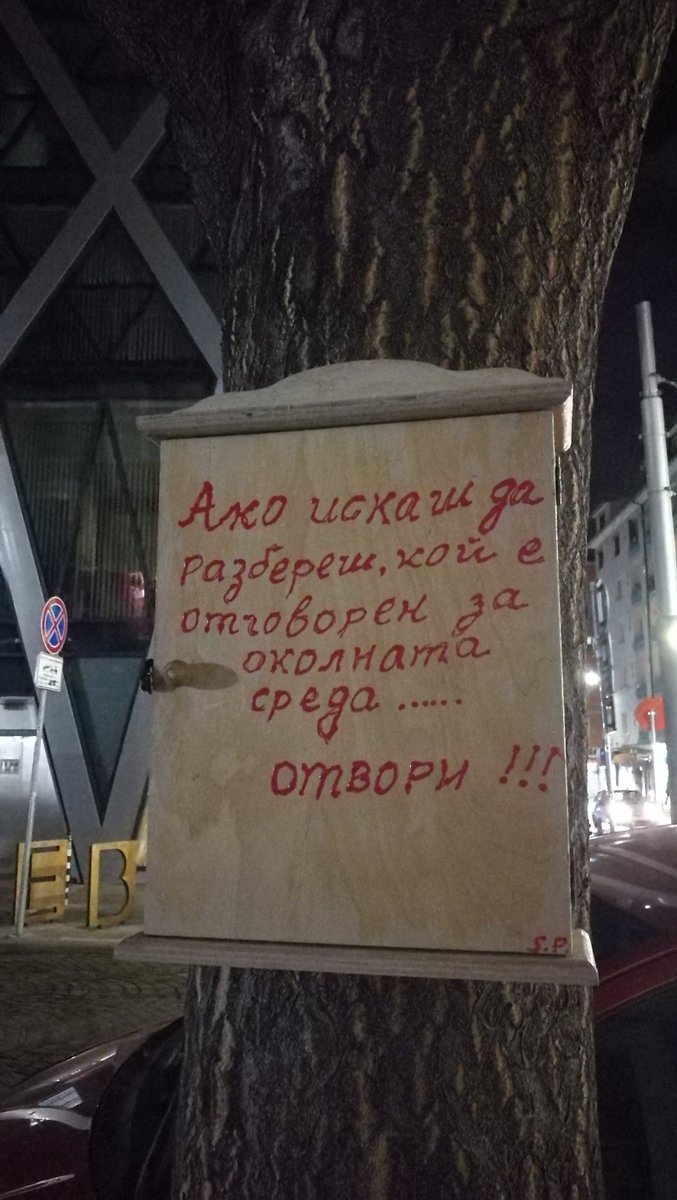 Ако искаш да
разбереш, кой е
отговорен за
околната
среда ......
ОТВОРИ !!!
S.P.
Е В